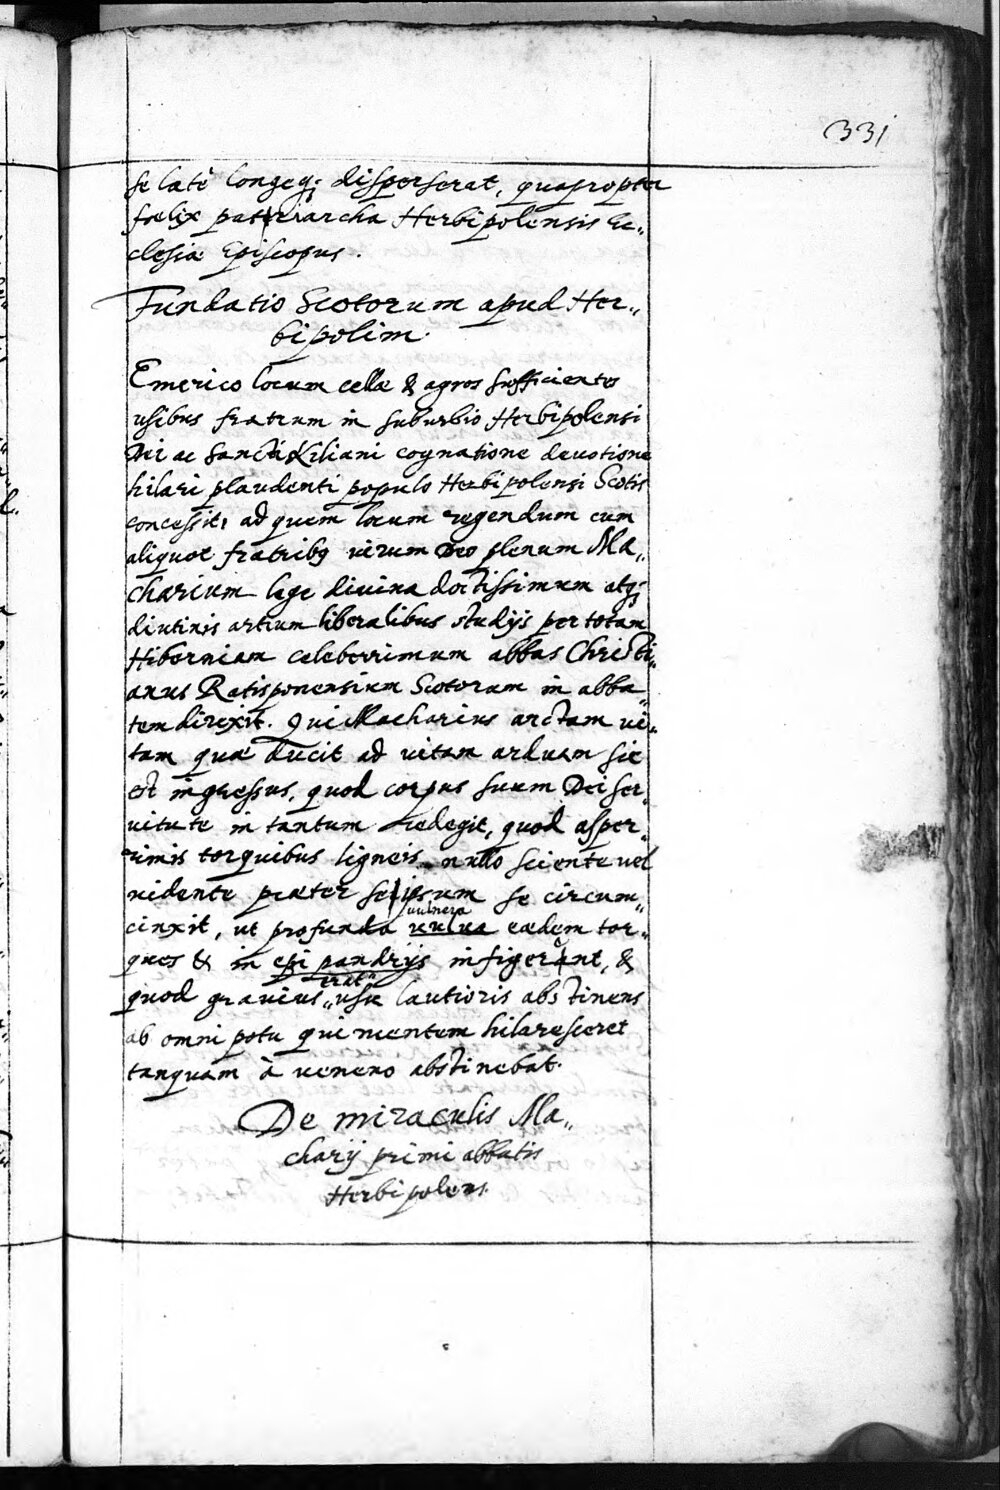 331
se latè longeq; disperserat, quapropter
fœlix patriarcha Herbipolensis Ec„
clesiæ Episcopus.
Fundatio Scotorum apud Her„
bipolim.
Emerico locum cellæ & agros sufficientes
usibus fratrum in suburbio Herbipolensi
Dei ac sancti Kiliani cognatione deuotione
hilari plaudenti populo Herbipolensi Scotis
concessit, ad quem locum regendum cum
aliquot fratribꝯ uirum Deo plenum Ma„
charium lege diuina doctissimum atq;
diutinis artium liberalibus studijs per totam
Hiberniam celeberrimum abbas Christi„
anus Ratisponensium Scotorum in abba„
tem direxit. Qui Macharius arctam ui„
tam quæ ducit ad uitam arduam sic
est ingressus, quod corpus suum Dei ser„
uitute in tantum redegit, quod asper„
rimis torquibus ligneis nullo sciente uel
uidente præter seipsum se circum„
uulnera
cinxit, ut profunda uulua eædem tor„
ques & in epi pandrijs infigerent, &
erat„
quod grauius „usu lautioris abstinens
ab omni potu qui mentem hilaresceret
tanquam à ueneno abstinebat.
De miraculis Ma„
charij primi abbatis
Herbipolens.